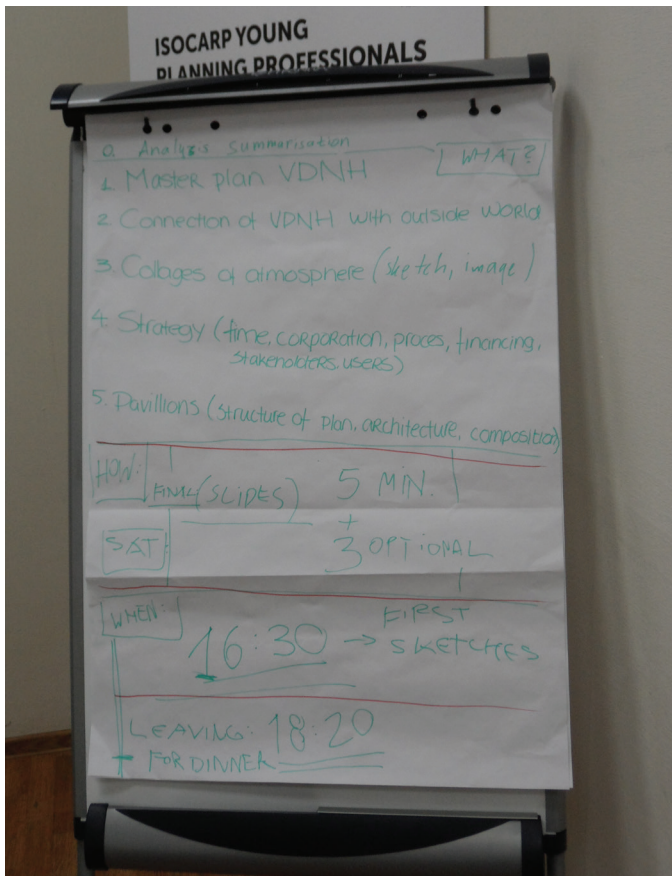 ISOCARP YOUNG
PLANNING PROFESSIONALS
0. Analysis summerisation
WHAT?
1. Master plan VDNH
2. Connection of VDNH with outside world
3. Collages of atmosphere (sketch, image)
4. Strategy (time, corporation, proces, financing,
stakeholders, users)
5. Pavillions (structure of plan, architecture, composition)
HOW:
FINAL (SLIDES) 5 MIN.
+
SAT: 3 OPTIONAL
WHEN:
16:30 → FIRST
SKETCHES
LEAVING: 18:20
FOR DINNER